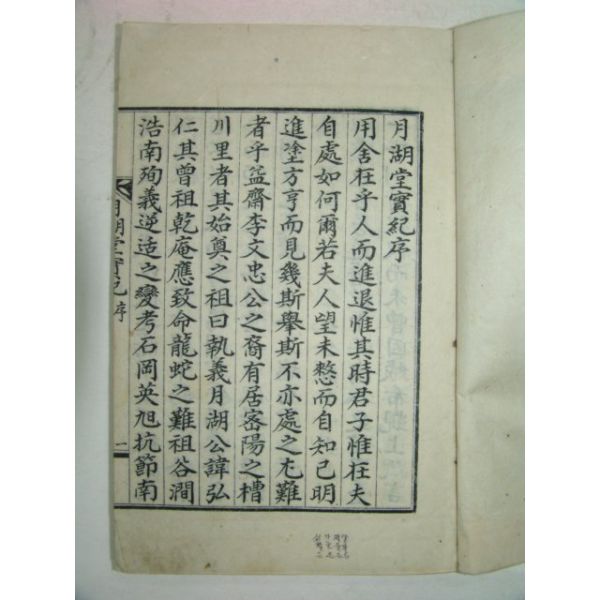 月湖堂實紀序
用舍在乎人而進退惟其時君子惟在夫
自處如何爾若夫人望未憗而自知已明
進塗方亨而見幾斯擧斯不亦處之尤難
者乎益齋李文忠公之裔有居密陽之槽
川里者其始奠之祖曰執義月湖公諱弘
仁其曾祖乾庵應致命龍蛇之難祖谷澗
浩南殉義逆适之變考石岡英旭抗節南
月湖堂實紀 序
一